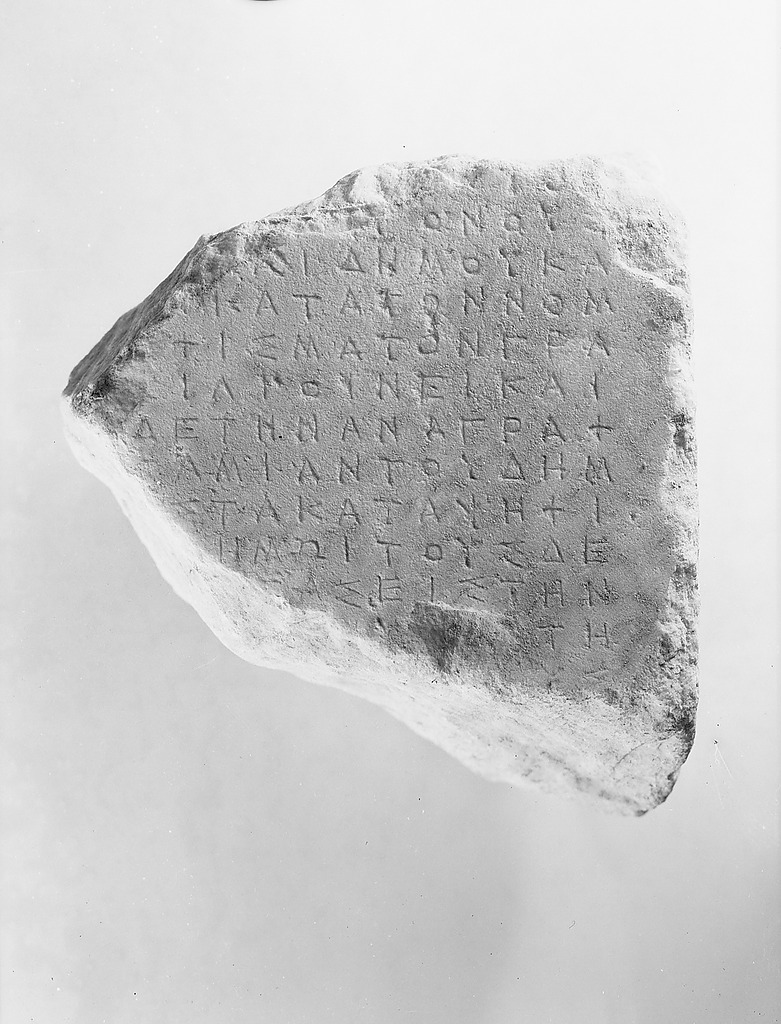 ΟΝΟΥ
ΙΔΗΜΟΥΚΑ
ΚΑΤΑΤΟΝΝΟΜ
ΙΣΜΑΤΩΝΓΡΑ
ΙΑΚΟΥΝΕΙΚΑΙ
ΔΕΤΗΝΑΝΑΓΡΑ
ΑΜΙΑΝΤΟΥΔΗΜ
ΤΑΚΑΤΑΨΗΦΙ
ΗΜΩΙΤΟΥΣΔΕ
ΑΣΕΙΣΤΗΝ
ΤΗ